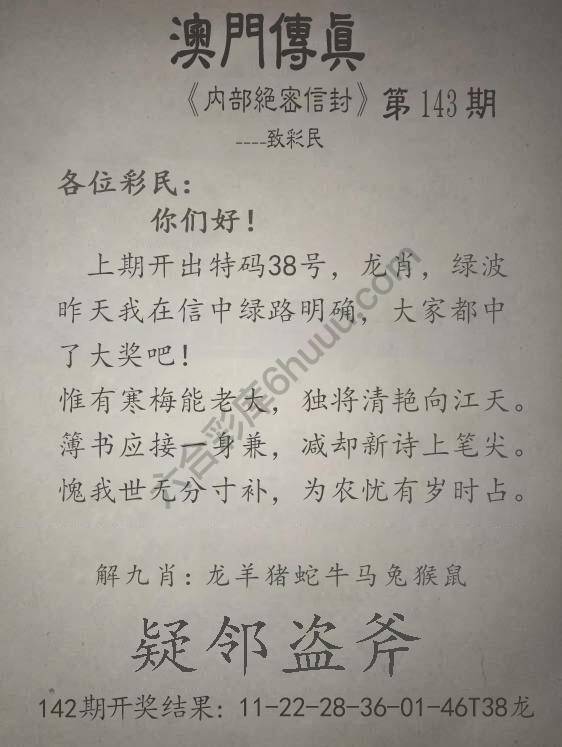 澳門傳眞
《内部絕密信封》第143期
----致彩民
各位彩民：
你们好！
上期开出特码38号，龙肖，绿波
昨天我在信中绿路明确，大家都中
了大奖吧！
惟有寒梅能老大，独将清艳向江天。
簿书应接一身兼，减却新诗上笔尖。
愧我世无分寸补，为农忧有岁时占。
六合彩库6huuu.com
解九肖：龙羊猪蛇牛马兔猴鼠
疑邻盗斧
142期开奖结果：11-22-28-36-01-46T38龙